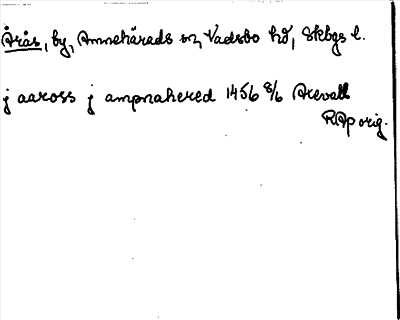 Årås, by, Amnehärads sn, Vadsbo hd, Skbgs l.
j aaross j ampnahered 1456 8/6 Arevall
RAp orig.